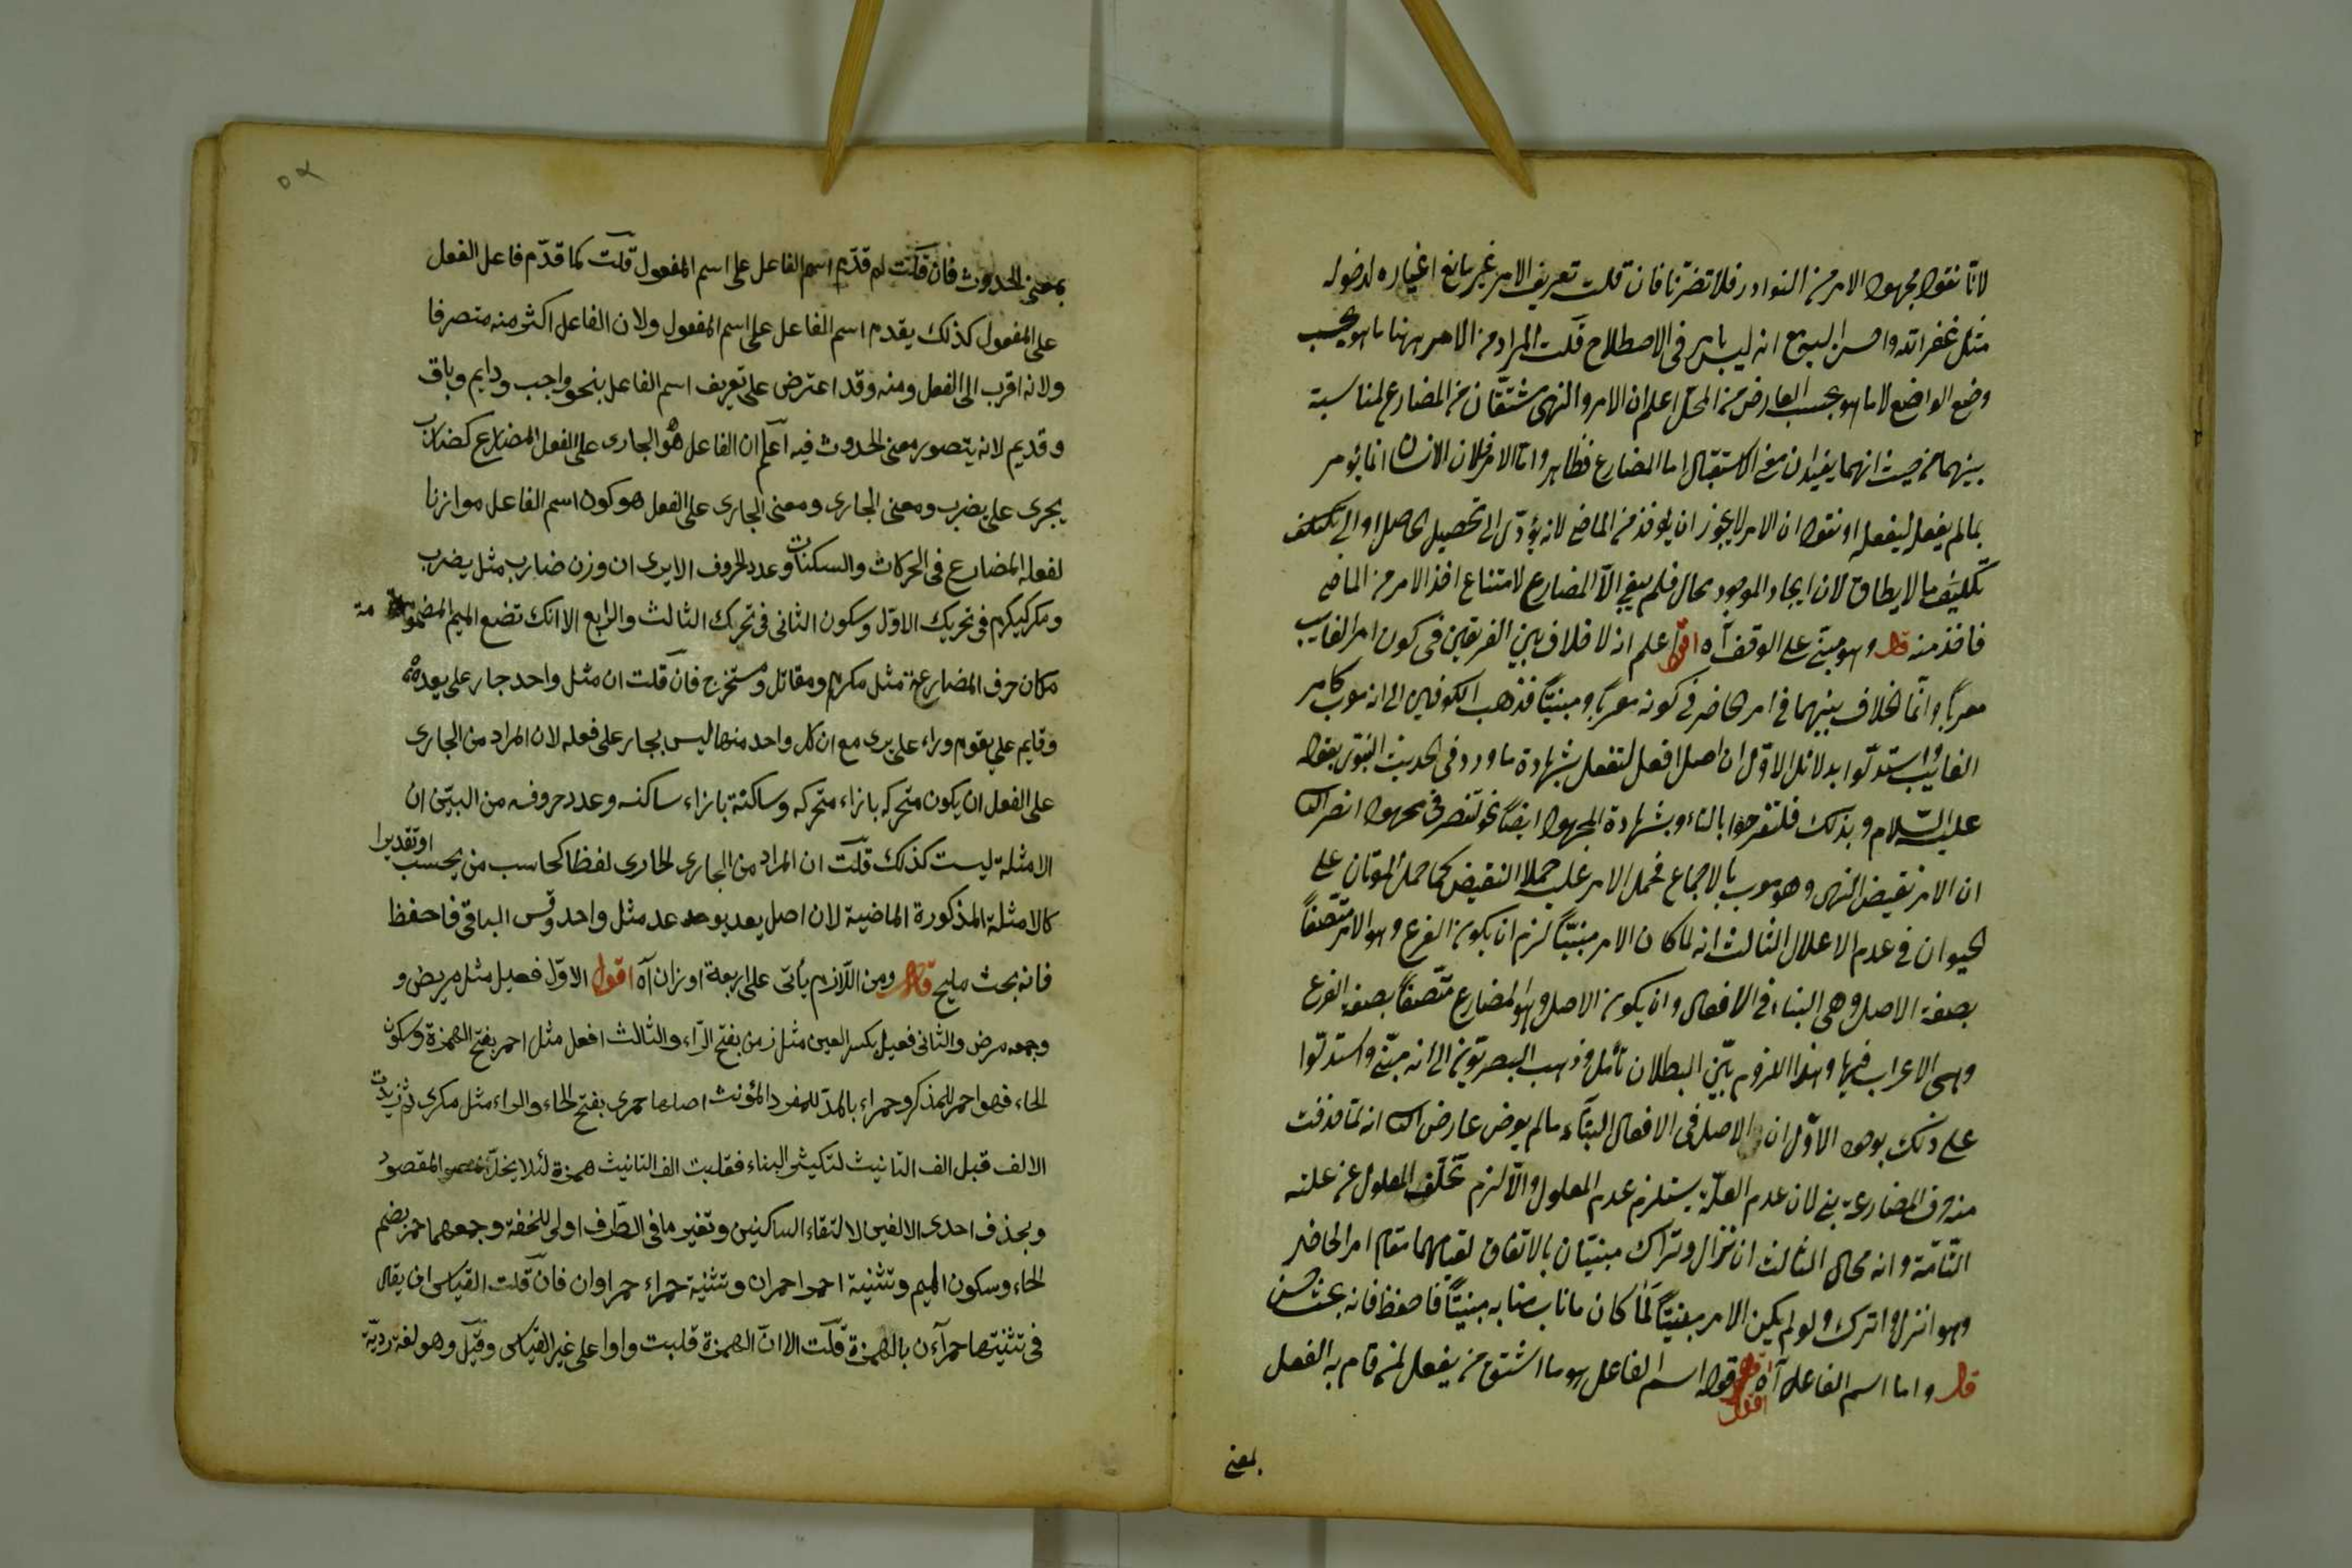 لانا نقول مجهول الامر من النوادر فلا تضرنا فان قلت تعريف الامر غير مانع اغياره لدخوله
مثل غفر الله واحسن البيع انه ليس بامر فى الاصطلاح قلت المراد من الامر ههنا ما هو بحسب
وضع الواضع لا ما هو بحسب العارض من المحل اعلم ان الامر والنهى مشتقان من المضارع لمناسبة
بينهما من حيث انهما يفيدان معنى الاستقبال اما المضارع فظاهر واما الامر فلان الانسان انما يؤمر
بما لم يفعل ليفعله او نقول ان الامر لا يجوز ان يؤخذ من الماضى لانه يؤدى الى تحصيل الحاصل او الى تكلف
تكليف ما لا يطاق لان ايجاد الموجود محال فلم يبق الا المضارع لامتناع اخذ الامر من الماضى
فاخذ منه قال وهو مبنى على الوقف آه اقول اعلم انه لا خلاف بين الفريقين فى كون امر الغايب
معربا وانما الخلاف بينهما فى امر الحاضر فى كونه معربا ومبنيا فذهب الكوفيين الى انه معرب كامر
الغائب واستدلوا بدلائل الاول ان اصل افعل لتفعل بشهادة ما ورد فى الحديث النبوى بقوله
عليه السلام وبذلك فلتفرحوا بالتاء وبشهادة المجهول ايضا نحو لتنصر فى مجهول انصر الثا
ان الامر نقيض النهى وهو معرب بالاجماع فحمل الامر عليه حملا النقيض كما حمل الموتان على
الحيوان فى عدم الاعلال الثالث انه لما كان الامر مبنيا لزم ان يكون الفرع وهو الامر متصفا
بصفة الاصل وهى البناء فى الافعال وان يكون الاصل وهو المضارع متصفا بصفة الفرع
وهى الاعراب فيها وهذا اللزوم بين البطلان تأمل وذهب البصريون الى انه مبنى واستدلوا
على ذلك بوجوه الاول ان الاصل فى الافعال البناء ما لم يعرض عارض الثا انه لما حذفت
منه حرف المضارعة بنى لان عدم العلة يستلزم عدم المعلول والا لزم تخلف المعلول عن علته
التامة وانه محال الثالث ان نزال وتراك مبنيان بالاتفاق لقيامهما مقام امر الحاضر
وهو انزل واترك ولو لم يكن الامر مبنيا لما كان ما ناب منابه مبنيا فاحفظ فانه بحث حسن
قال واما اسم الفاعل آه اقول قوله اسم الفاعل هو ما اشتق من يفعل لمن قام به الفعل
بمعنى
بمعنى الحدوث فان قلت لم قدم اسم الفاعل على اسم المفعول قلت كما قدم فاعل الفعل
على المفعول كذلك يقدم اسم الفاعل على اسم المفعول ولان الفاعل اكثر منه متصرفا
ولانه اقرب الى الفعل ومنه وقد اعترض على تعريف اسم الفاعل بنحو واجب ودايم وباق
وقديم لانه يتصور معنى الحدوث فيه اعلم ان الفاعل هو الجارى على الفعل المضارع كضارب
يجرى على يضرب ومعنى الجارى ومعنى الجارى على الفعل هو كون اسم الفاعل موازنا
لفعله المضارع فى الحركات والسكنات وعدد الحروف الا يرى ان وزن ضارب مثل يضرب
ومكرم كيكرم فى تحريك الاول وسكون الثانى فى تحريك الثالث والرابع الا انك تضع الميم المضمومة
مكان حرف المضارعة مثل مكرم ومقاتل ومستخرج فان قلت ان مثل واحد جار على يعد
وقايم على يقوم وراء على يرى مع ان كل واحد منها ليس بجار على فعله لان المراد من الجارى
على الفعل ان يكون متحركه بازاء متحركه وساكنة بازاء ساكنه وعدد حروفه من البين ان
الامثلة ليست كذلك قلت ان المراد من الجارى الجارى لفظا كحاسب من يحسب او تقديرا
كالامثلة المذكورة الماضية لان اصل يعد يوعد عد مثل واحد وقس الباقى فاحفظ
فانه بحث مليح قال ومن اللازم يأتى على اربعة اوزان آه اقول الاول فعيل مثل مريض و
وجمعه مرض والثانى فعيل بكسر العين مثل زمن بفتح الراء والثالث افعل مثل احمر بفتح الهمزة وسكون
الحاء فهو احمر للمذكر وحمراء بالمد للمفرد المؤنث اصلها حمرى بفتح الحاء والراء مثل سكرى ثم زيدت
الالف قبل الف التانيث لتكثير البناء فقلبت الف التانيث همزة لئلا يخل المقصود
وبحذف احدى الالفين لالتقاء الساكنين وتغير ما فى الطرف اولى للخفة وجمعهما حمر بضم
الحاء وسكون الميم وتثنية احمر احمران وتثنية حمراء حمراوان فان قلت القياس ان يقال
فى تثنيتها حمرآءن بالهمزة قلت الا ان الهمزة قلبت واوا على غير القياس وقيل وهو لغة ردية